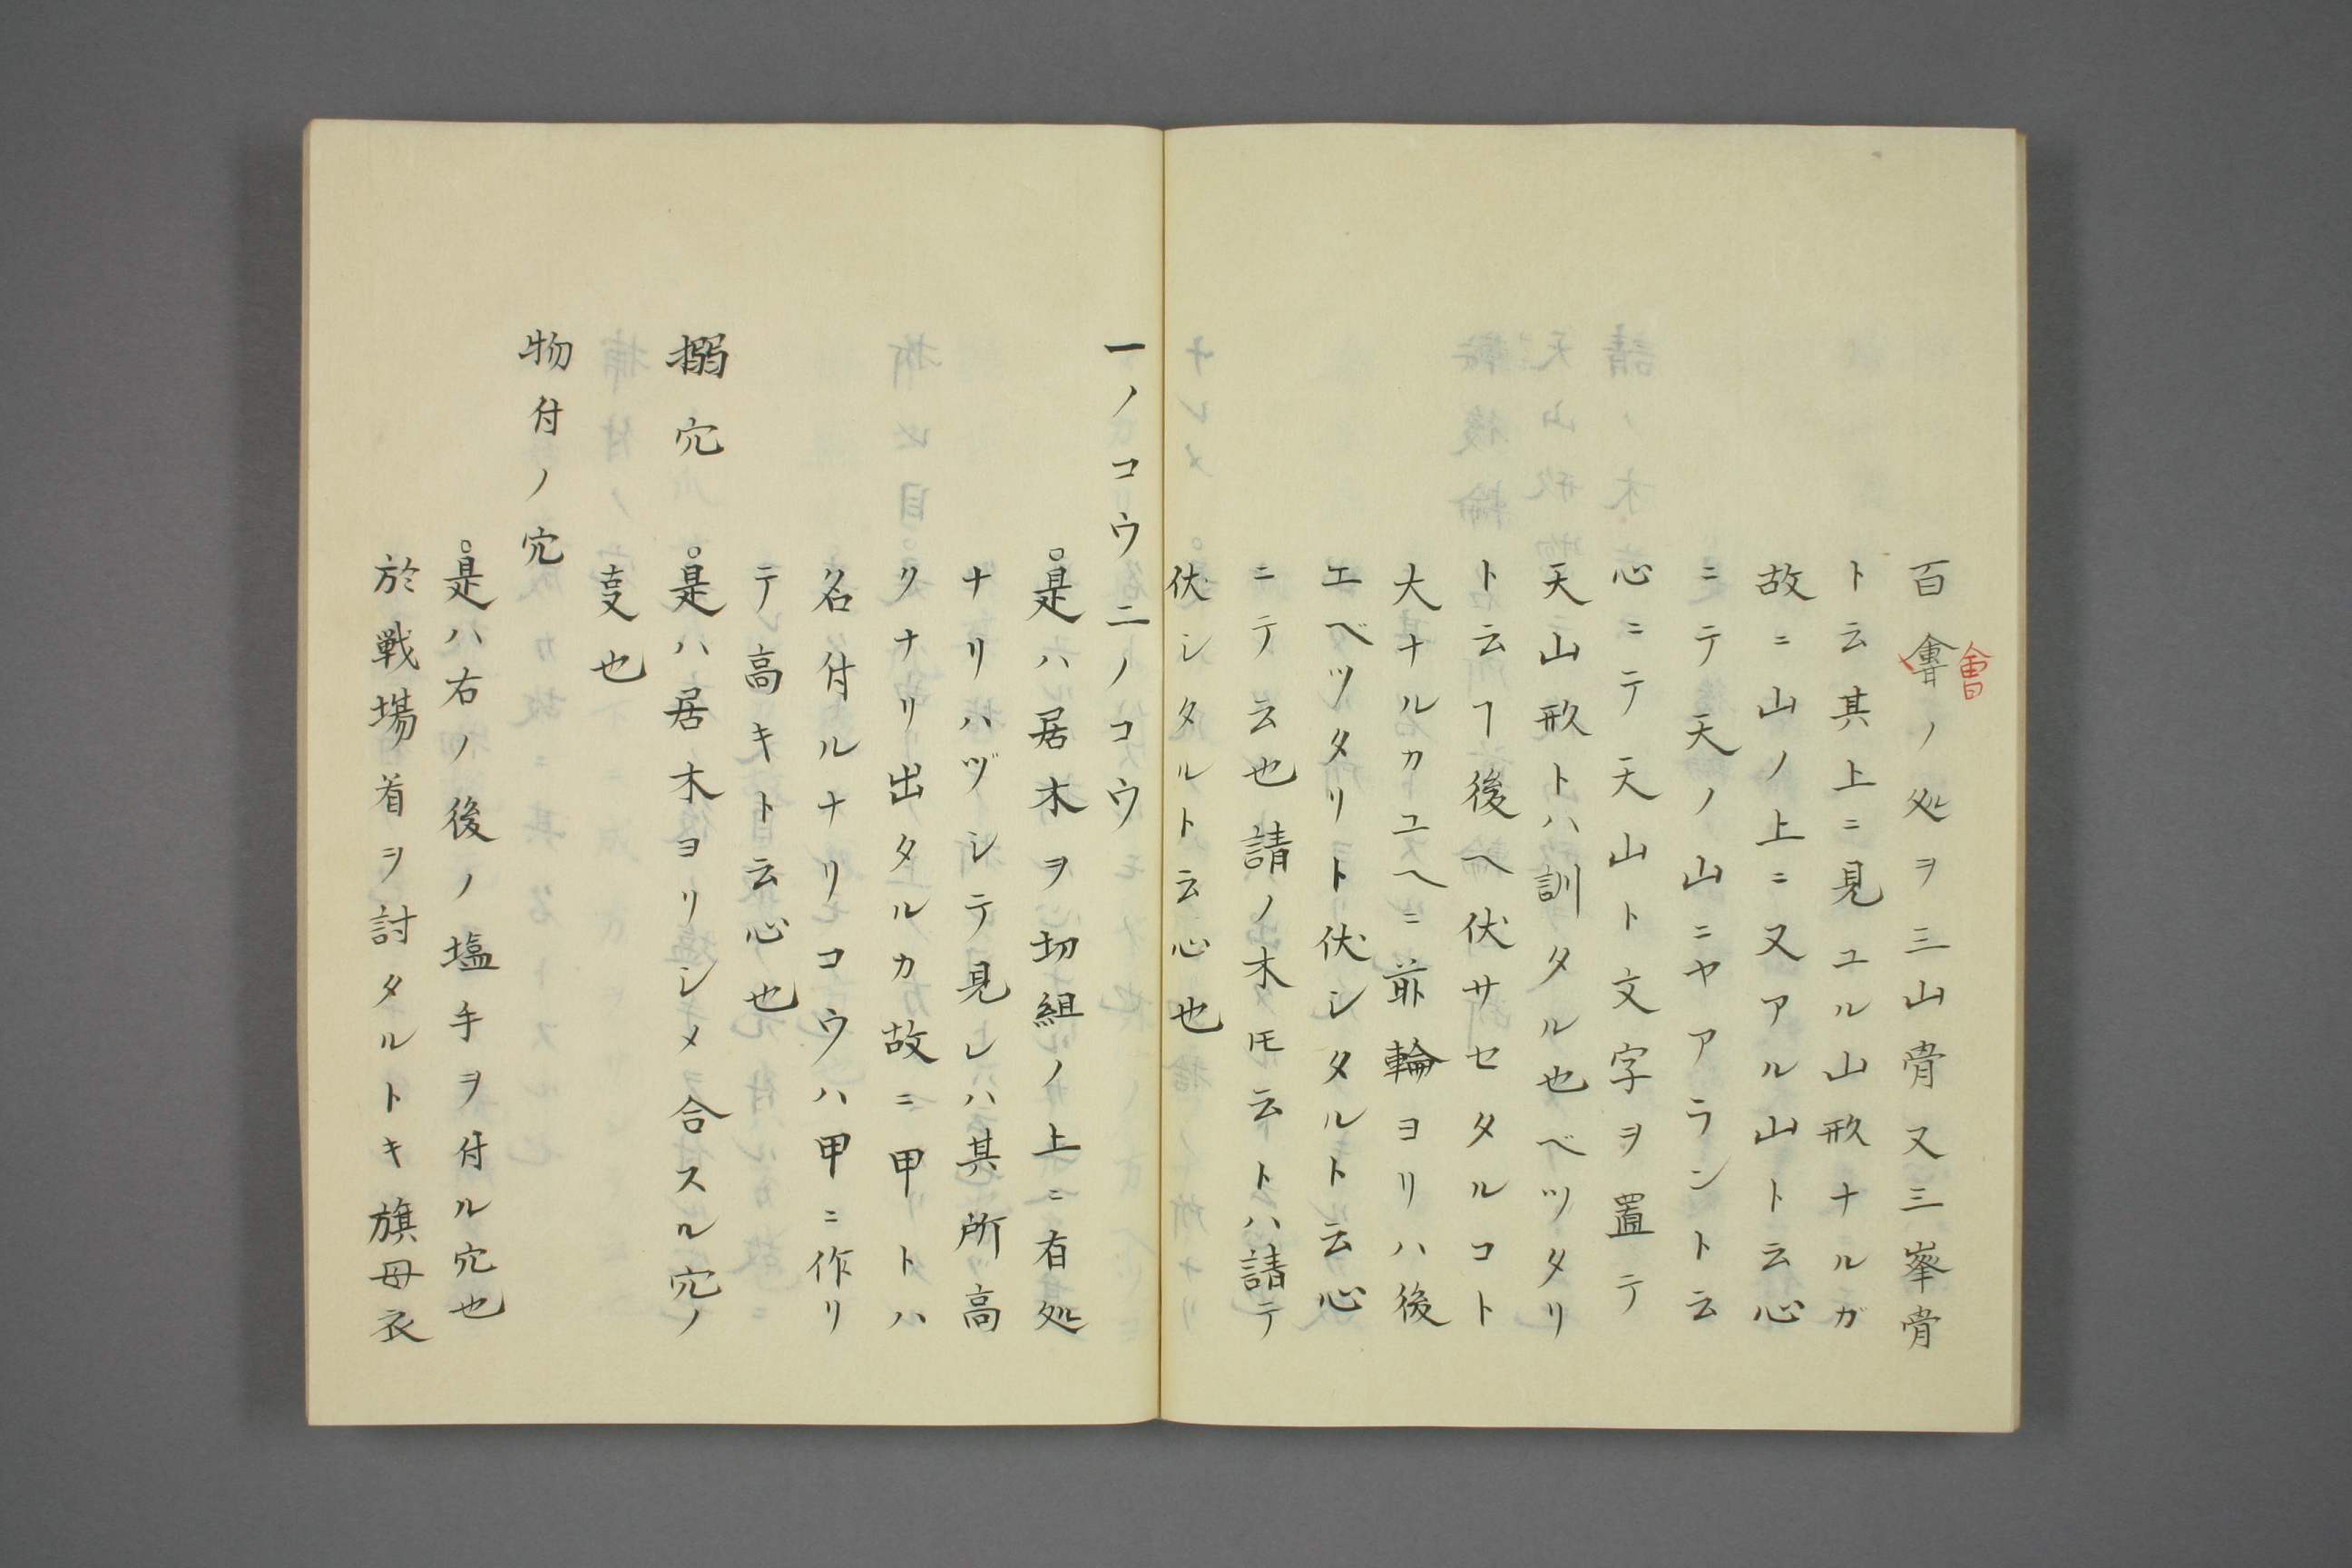 百會ノ処ヲ三山骨又三峯骨
會
ト云其上ニ見ユル山形ナルガ
故ニ山ノ上ニ又アル山ト云心
ニテ天ノ山ニヤアラント云
心ニテ天山ト文字ヲ置テ
天山形トハ訓タル也ベツタリ
ト云ヿ後ヘ伏サセタルコト
大ナルカユヘニ前輪ヨリハ後
エベツタリト伏シタルト云心
ニテ云也請ノ木𪜈云トハ請テ
伏シタルト云心也
一ノコウ二ノコウ
。是ハ居木ヲ切組ノ上ニ有処
ナリハヅシテ見レハ其所高
クナリ出タルカ故ニ甲トハ
名付ルナリコウハ甲ニ作リ
テ高キト云心也
搦穴
。是ハ居木ヨリシメ合スル穴ノ
叓也
物付ノ穴
。是ハ右ノ後ノ塩手ヲ付ル穴也
於戦場首ヲ討タルトキ旗母衣